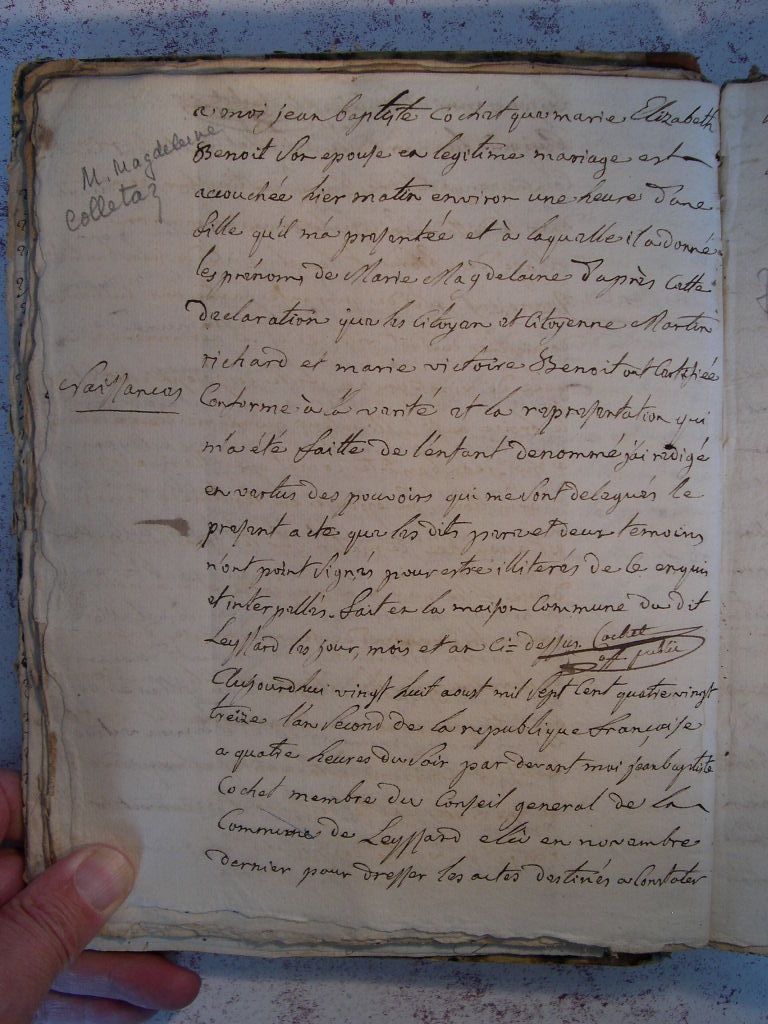 M. Magdelaine
Colletaz
Naissances
a moi jean baptiste Cochet que marie Elizabeth
Benoit son epouse en legitime mariage est
accouchée hier matin environ une heure d'une
fille qu'il m'a presentée et à laquelle il a donné
les prénoms de Marie Magdelaine d'après cette
declaration que les Citoyen et Citoyenne Martin
richard et marie victoire Benoit ont Certifiée
Conforme à la verité et la representation qui
m'a été faitte de l'enfant denommé j'ai redigé
en vertus des pouvoirs qui me sont delegués le
present acte que les dits pere et deux temoins
n'ont point signés pour estre illiterés de ce enquis
et interpellés. fait en la maison Commune du dit
Leyssard les jour, mois et an Ci-dessus Cochet
off. public
Aujourdhui vingt huit aoust mil sept Cent quatre vingt
treize l'an second de la republique française
a quatre heures du soir par devant moi jean baptiste
Cochet membre du Conseil general de la
Commune de Leyssard elû en novembre
dernier pour dresser les actes destinés a Constater